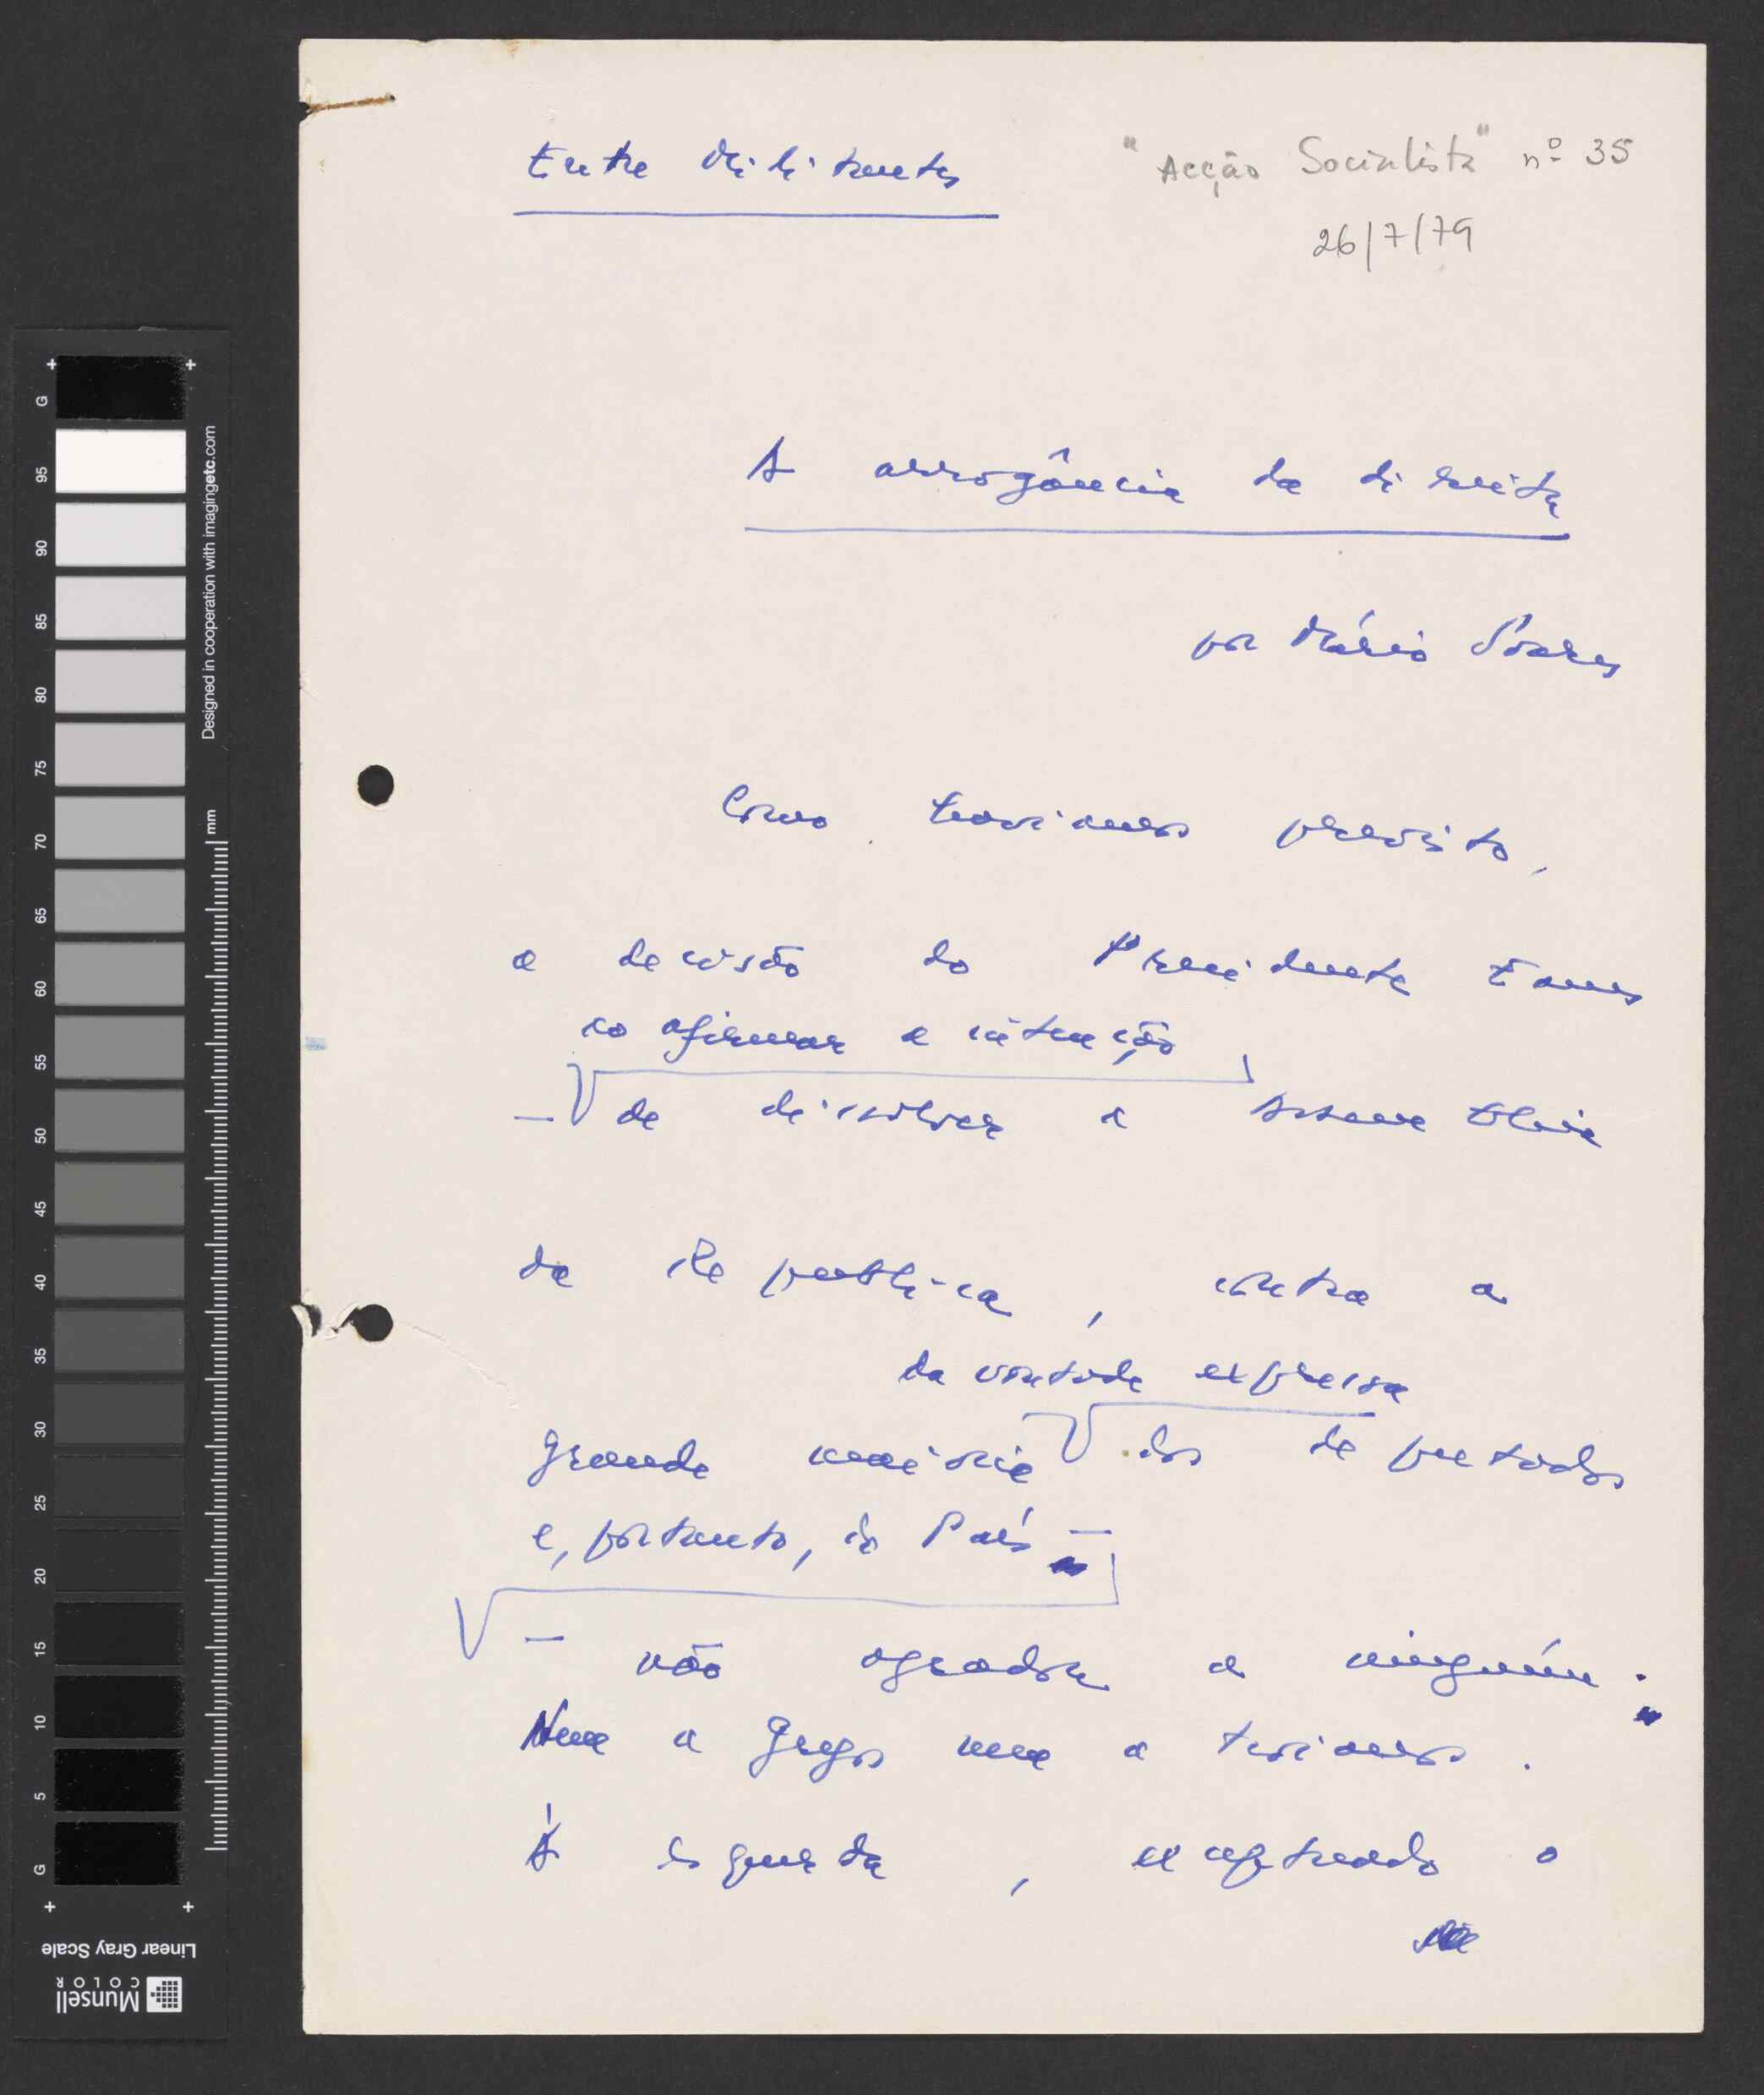 Entre Militantes
"Acção Socialista" nº 35
26/7/79
A arrogância da direita
por Mário Soares
Como havíamos previsto,
a decisão do Presidente Eanes
ao afirmar a intenção
— de dissolver a Assembleia
da República, contra a
da vontade expressa
grande maioria dos deputados
e, portanto, do País —
— não agradou a ninguém.
Nem a gregos nem a troianos.
À esquerda, exceptuando o
G 95 90 85 80 75 70 65 60 55 50 45 40 35 30 25 20 15 10 5 G
Designed in cooperation with imagingetc.com
mm
Linear Gray Scale
Munsell
COLOR